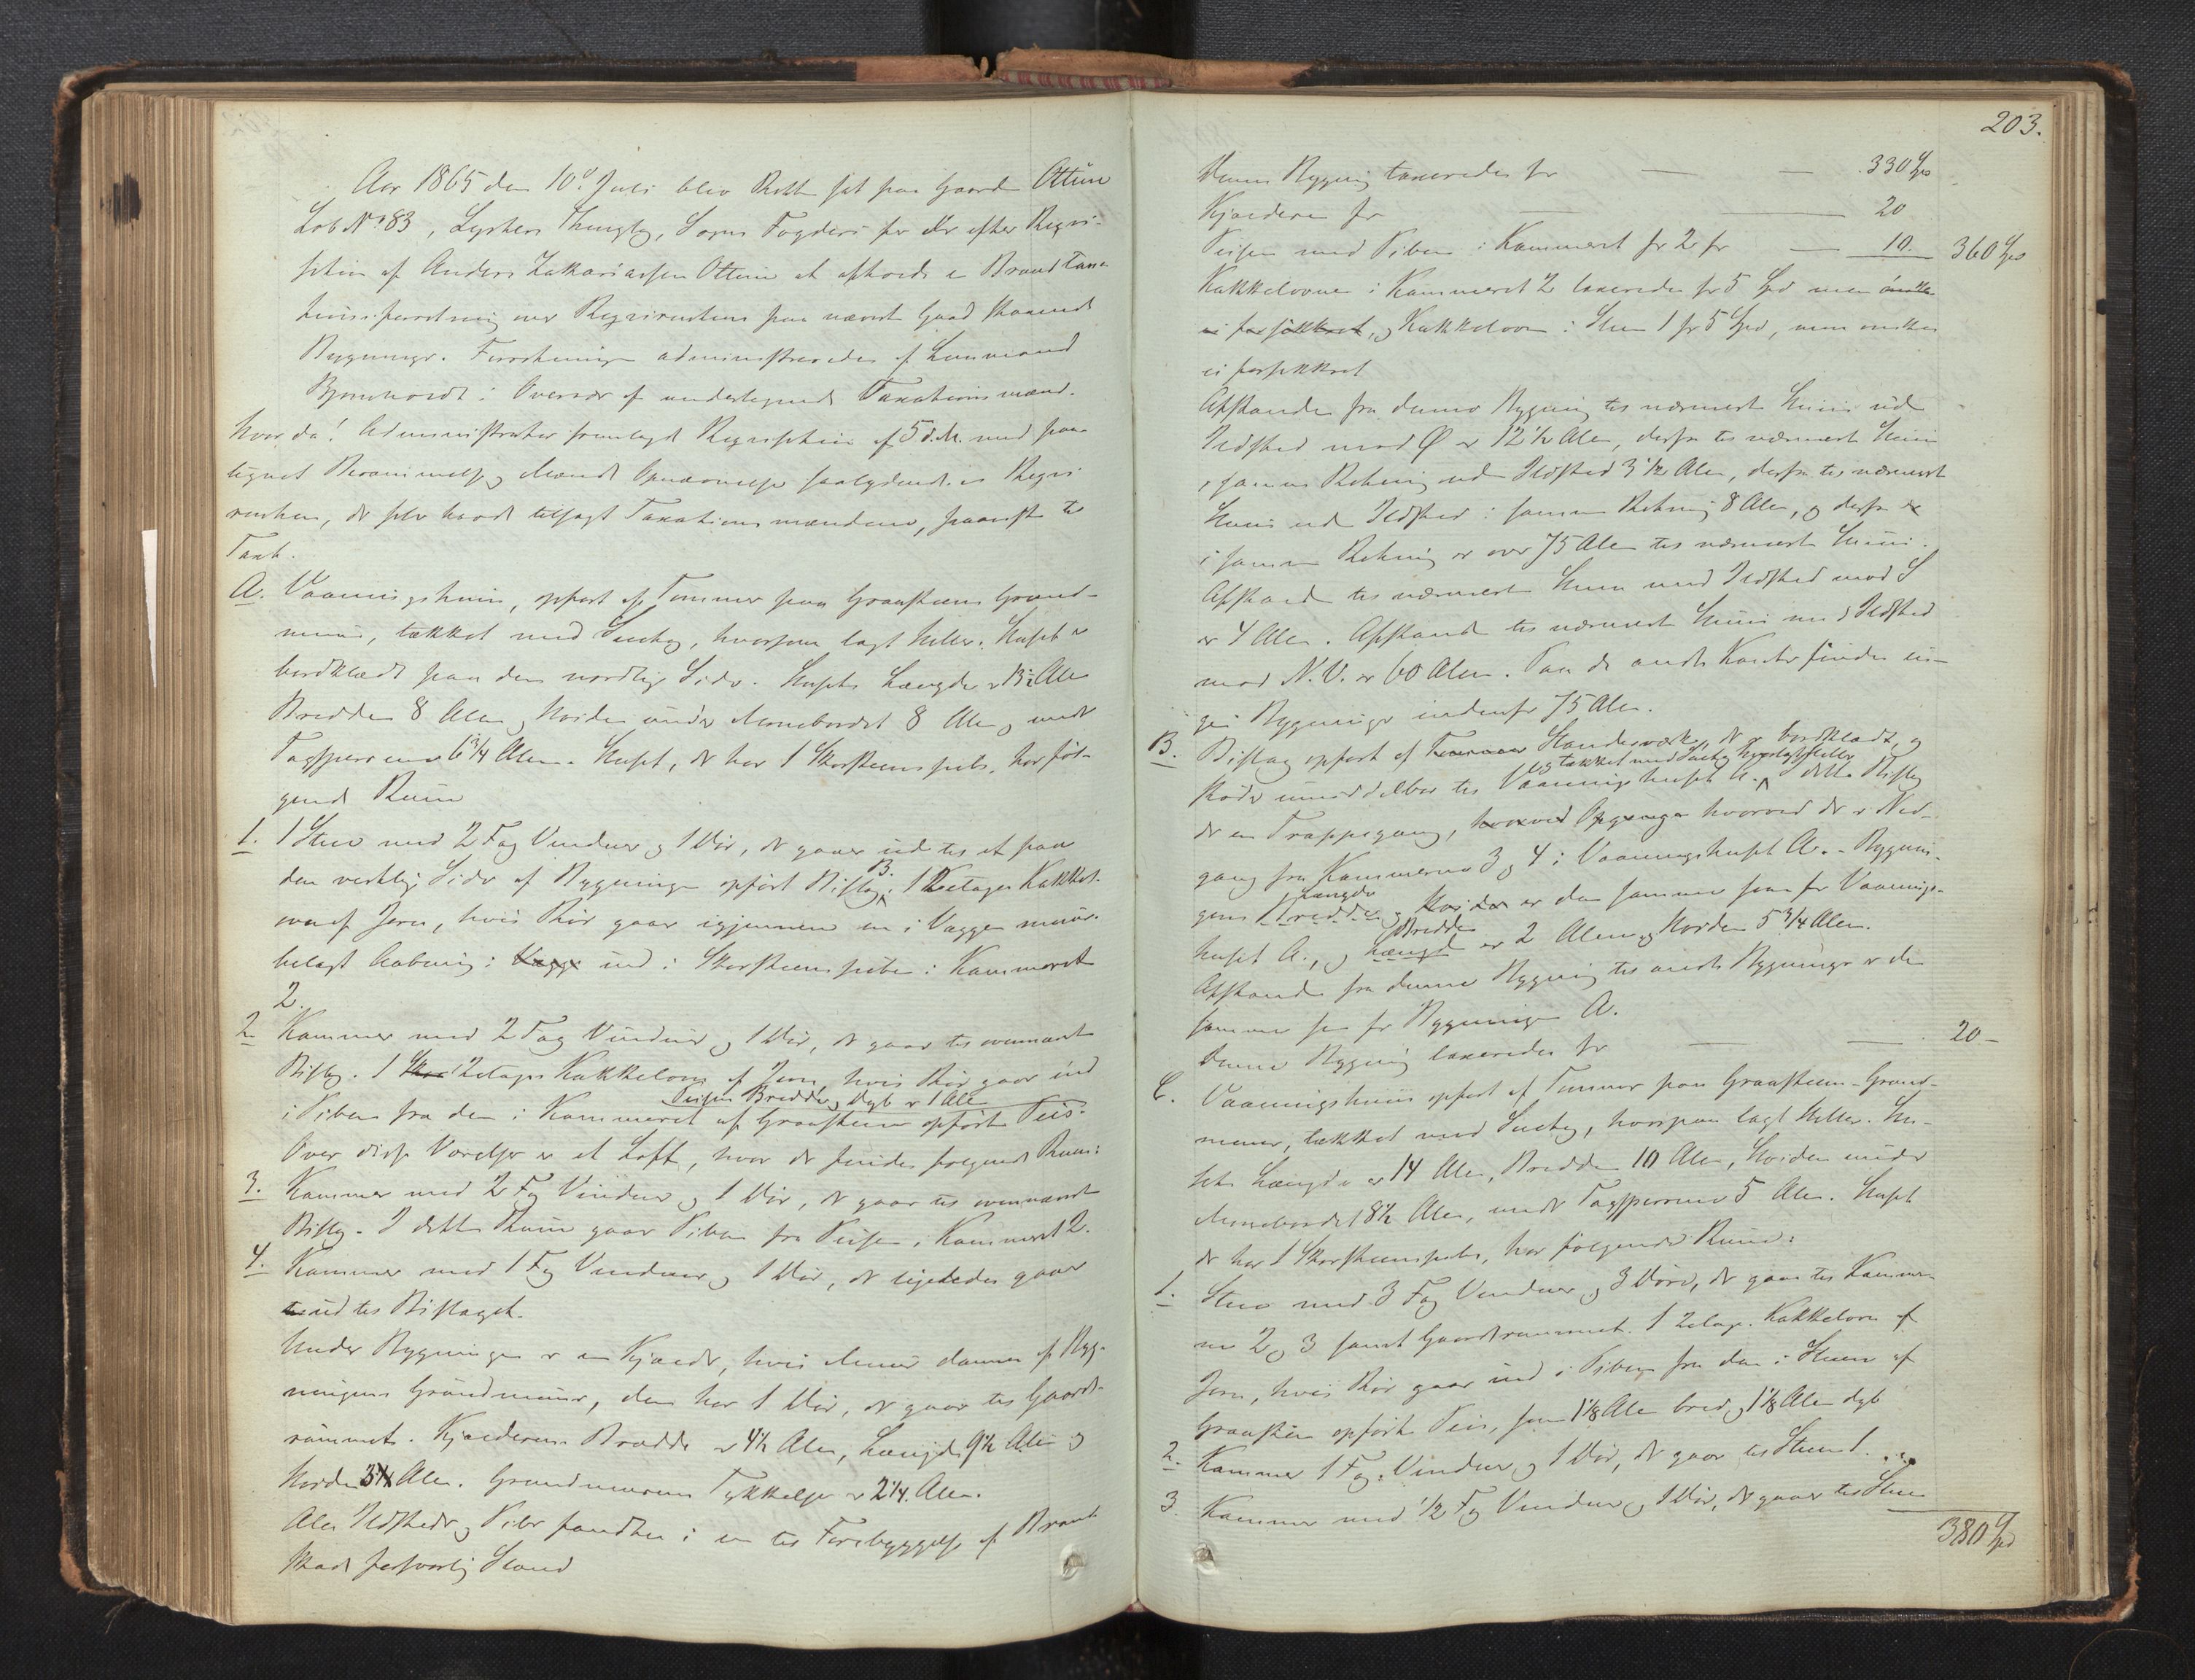 Aar 1865 den 10de Juli blev Rett sat paa Gaarden Ottum
Løb No 83, Lysters Thinglag, Sogns Fogderi for der efter Reqvi-
sition af Anders Zakariassen Ottum at afholde en Brandtaxa-
tionsforretning over Reqvirentens paa nævnte Gaard staaende
Bygninger. Forretningen administreredes af Lensmand
i Overvær af undertegnede Taxationsmænd.
Hvorda! Administrator fremlagde Reqvisition af 5 d. M. med paa-
tegnet Berammelse og Mænds Opnævnelse saalydende. Reqvi
renten, der selv havde tilsagt Taxationsmændene, paaviste til
Taxt.
A. Vaaningshuus, opført af Tømmer paa Graasteens Grund-
muur, tækket med Sutag, hvorpaa lagt Heller. Huset er
bordklædt paa den nordlige Side. Husets Længde er 13½ Alen
Bredden 8 Alen og Høiden under Mønebordet 8 Alen og under
Tagsperrerne 6¾ Alen. Huset, der har 1 Skorsteenspibe, har føl-
gende Rum
1. 1 Stue med 2 Fag Vinduer og 1 Dør, der gaaer ud til et paa
den vestlige Side af Bygningen opført Bislag B. 1 2etages Kakkel-
ovn af Jern, hvis Rør gaar igjennem en i Væggen muur-
belagt Aabning i Vægge ind i Skorsteenspiben i Kammeret
2.
2. Kammer med 2 Fag Vinduer og 1 Dør, der gaar til ovennævnte
Bislag. 1 2etages Kakkelovn af Jern, hvis Rør gaar ind
Peisens Bredde og Dyb er 1 Alen
i Piben fra den i Kammeret af Graasteen opførte Peis.
Over disse Værelser er et Loft, hvor der findes følgende Rum:
3. Kammer med 2 Fag Vinduer og 1 Dør, der gaar til ovennævnte
Bislag. I dette Rum gaar Piben fra Peisen i Kammeret 2.
4. Kammer med 1 Fag Vinduer og 1 Dør, der ligeledes gaar
ud til Bislaget.
Under Bygningen er en Kjælder, hvis Muur dannes af Byg-
ningens Grundmuur, den har 1 Dør, der gaar til Gaards-
rummet. Kjælderens Bredde er 4½ Alen, Længde 9½ Alen og
Høiden 3¼ Alen. Grundmurens Tykkelse er 2¼ Alen.
Alle Ildsteder og Piber fandtes i en til Forebyggelse af Brand
skade forsvarlig Stand
203.
Denne Bygning taxeredes for — — 330 Spd
Kjælderen for — — 20
Peisen med Piben i Kammeret for 2 for — 10. 360 Spd
Kakkelovnen i Kammeret 2 taxeredes for 5 Spd men ønskes
ei forsikkret, og Kakkelovn i Stuen 1 for 5 Spd, men ønskes
ei forsikkret
Afstanden fra denne Bygning til nærmeste Huus uden
Ildsted mod Ø er 12½ Alen, derfra til nærmeste Huus
i samme Retning uden Ildsted 3½ Alen, derfra til nærmeste
Huus uden Ildsted i samme Retning 8 Alen, og derfra
i samme Retning er over 75 Alen til nærmeste Huus.
Afstand til nærmeste Huus med Ildsted mod S
er 4 Alen. Afstand til nærmeste Huus med Ildsted
mod N.V. er 60 Alen. Paa de andre Kanter findes in-
gen Bygninger indenfor 75 Alen.
B. Bislag opført af Tømmer Standerværk, der er bordklædt, og
og tækket med Sutag hvorpaa lagt Heller
støder umiddelbar til Vaaningshuset A. I dette Bislag
er en Trappegang, hvorved Opgangen hvorved der er Ned-
gang fra Kammerne 3 og 4 i Vaaningshuset A. - Bygnin-
Længde
gens Bredde og Høiden er den samme som for Vaanings-
Bredde
huset A., og Længde er 2 Alen og Høiden 5¾ Alen.
Afstanden fra denne Bygning til andre Bygninger er den
samme som for Bygningen A.
Denne Bygning taxeredes for — — 20 -
C. Vaaningshuus opført af Tømmer paa Graasteen-Grund-
muur, tækket med Sutag, hvorpaa lagt Heller. Hu-
sets Længde er 14 Alen, Bredden 10 Alen, Høiden under
Mønebordet 8½ Alen, under Tagsperrerne 5 Alen. Huset
der har 1 Skorsteenspibe, har følgende Rum:
1. Stue med 3 Fag Vinduer og 3 Døre, der gaar til Kammer-
ne 2 og 3 samt Gaardsrummet. 1 2etag. Kakkelovn af
Jern, hvis Rør gaar ind i Piben fra den i Stuen af
Graasteen opførte Peis, som 1⅛ Alen bred og 1⅛ Alen dyb
2. Kammer 1 Fag Vinduer og 1 Dør, der gaar til Stuen 1.
3. Kammer med ½ Fag Vinduer og 1 Dør, der gaar til Stuen
380 Spd